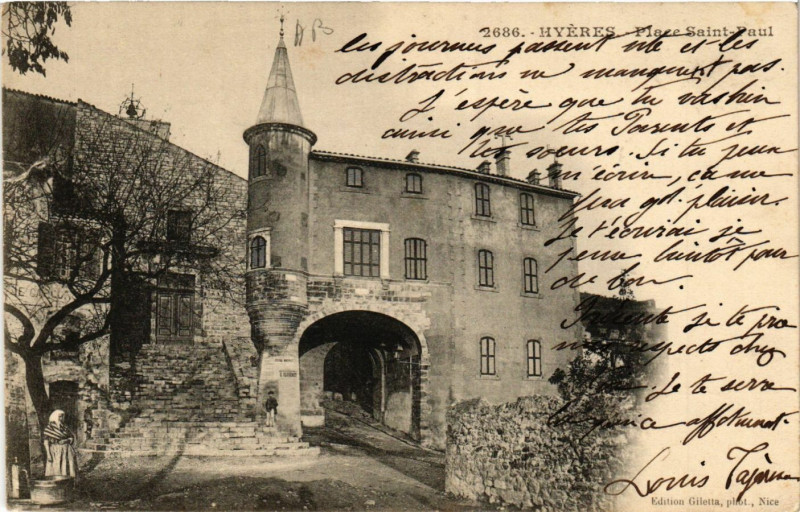 2686. - HYÈRES - Place Saint-Paul
les journées passent vite et les
distractions ne manquent pas.
J'espère que tu vas bien
ainsi que tes Parents et
tes sœurs. Si tu peux
m'écrire, ça me
fera gd. plaisir.
Je t'écrirai je
pense bientôt pour
de bon.
Présente si te
respects chez
toi. Je te serre
la pince affectueuxt.
Louis
Edition Giletta, phot., Nice